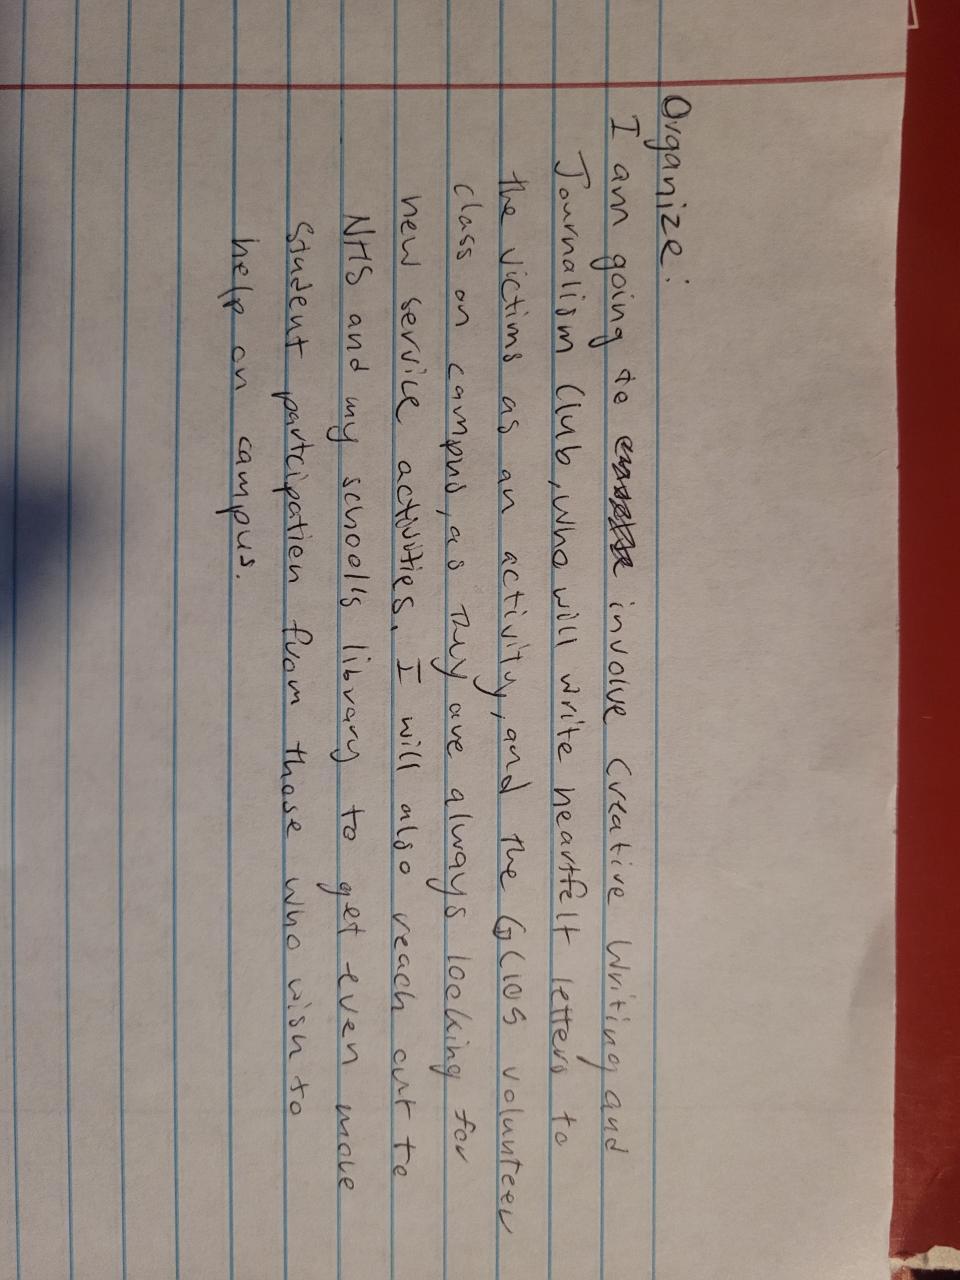 Organize:
I am going to involve Creative Writing and
Journalism Club, who will write heartfelt letters to
the victims as an activity, and the volunteer
class on campus, as they are always looking for
new service activities. I will also reach out to
NHS and my school's library to get even more
student partcipation from those who wish to
help on campus.